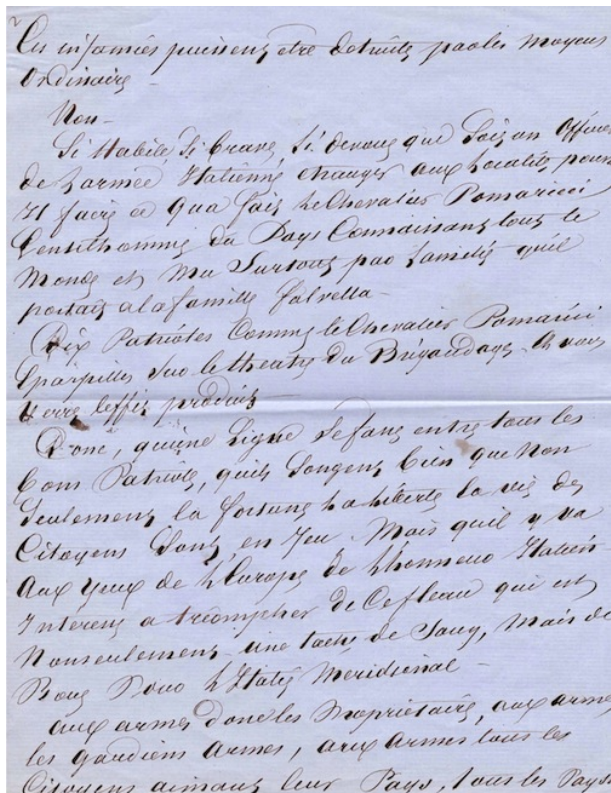 2
Ces infamies puissent etre detruites par les moyens
Ordinaire
Non –
Si Habile Si brave, Si devoué que Soit un Officier
de l'armée Italienne changer aux Localités pour
Il faire ce qua fait Le Chevalier Pomaricci
Gentilhomme du Pays Connaissant tout le
Monde et Ma Surtout par l'amitié qu'il
portait a la famille falvella –
Dix Patriotes Comme le Chevalier Pomaricci
Eparpillés Sur le theatre du Brigandage – et vous
verrez l'effet produit
Donc, qu'une Ligne Se fasse entre tous les
bons Patriotes, quils Songent bien que Non
Seulement la fortune La liberté la vie des
Citoyens Sont en Jeu. Mais quil y va
Aux yeux de L'Europe de L'honneur Italien
Interet a triompher de Ce fleau qui est
Non seulement une tache de Sang, Mais de
Boue Pour L'Italie Meridional –
aux armes donc les Propriétaires, aux armes
les gardiens Armes, aux Armes tous les
Citoyens aimant leur Pays, tous les Pays